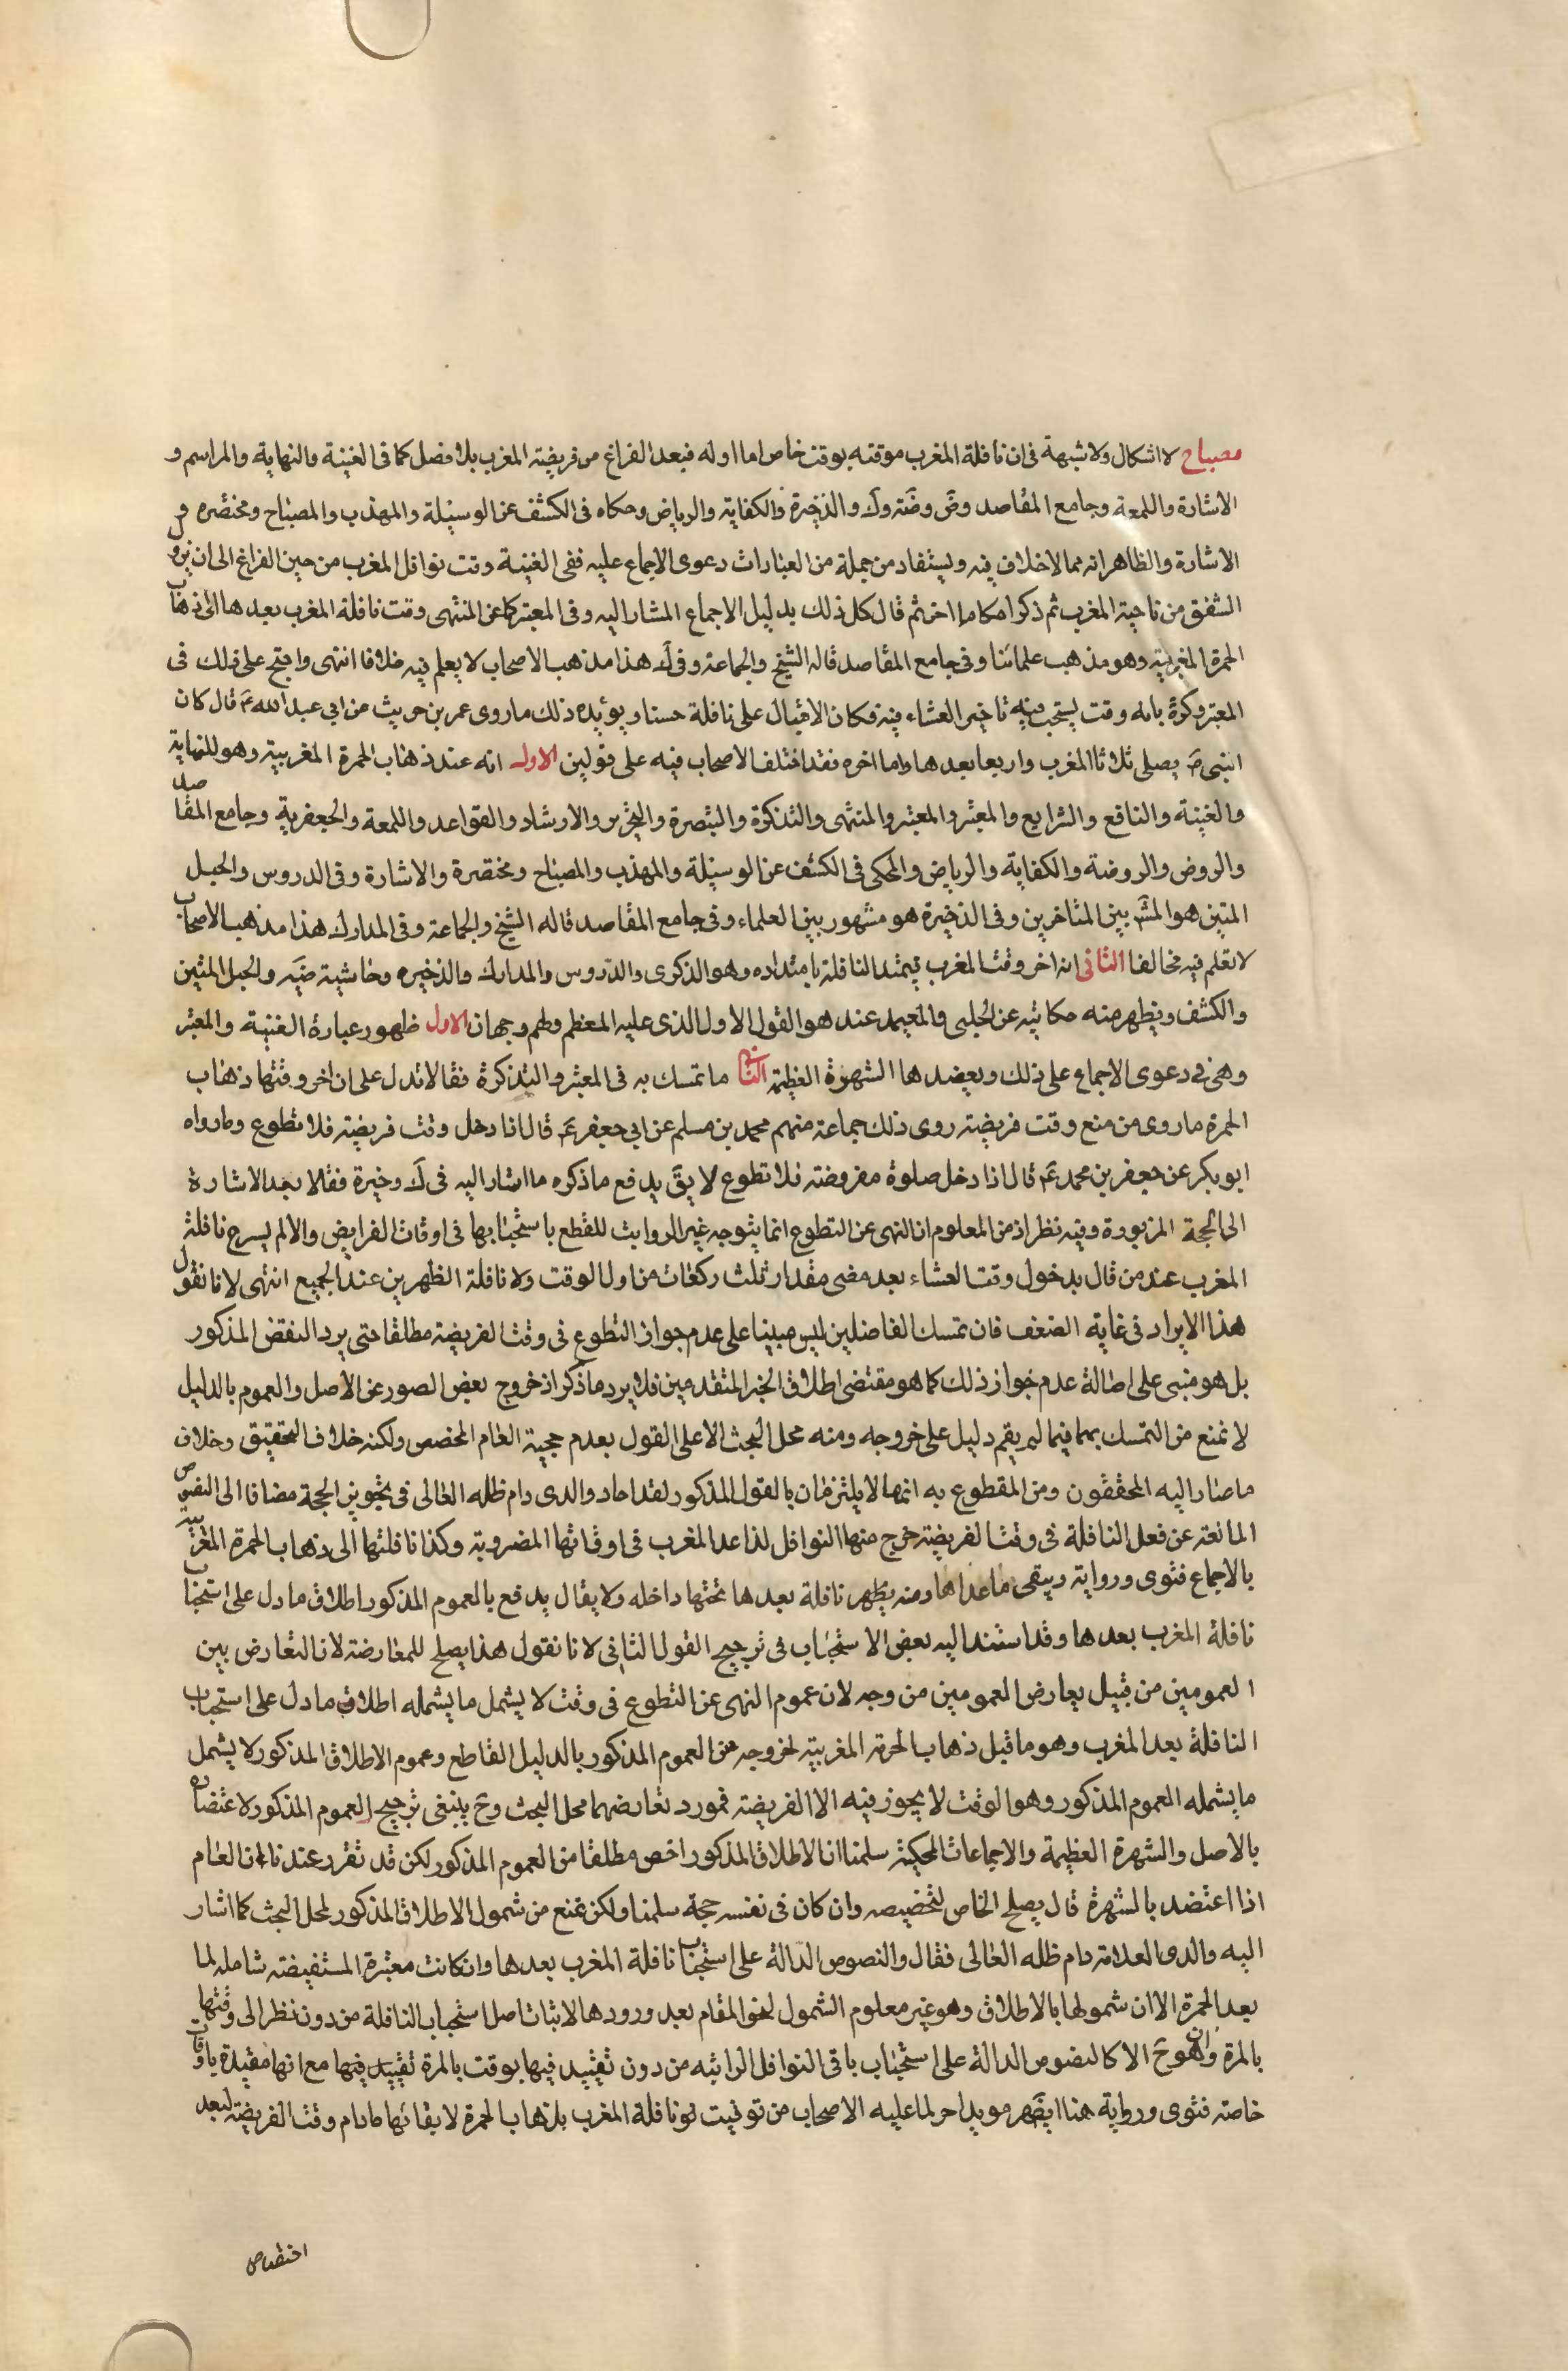 مصباح لا اشكال ولا شبهة فى ان نافلة المغرب موقته بوقت خاص اما اوله فبعد الفراغ من فريضة المغرب بلا فصل كما فى الغنية والنهاية والمراسم و
الاشارة واللمعة وجامع المقاصد وض وضة وك والذخيرة والكفاية والرياض وحكاه فى الكشف عن الوسيلة والمهذب والمصباح ومختصره و
الاشارة والظاهر انه مما لا خلاف فيه ويستفاد من جملة من العبارات دعوى الاجماع عليه ففى الغنية وقت نوافل المغرب من حين الفراغ الى ان يزول
الشفق من ناحية المغرب ثم ذكر احكاما اخر ثم قال كل ذلك بدليل الاجماع المشار اليه وفى المعتبر كما عن المنتهى وقت نافلة المغرب بعدها الى ذهاب
الحمرة المغربية وهو مذهب علمائنا وفى جامع المقاصد قاله الشيخ والجماعة وفى ك هذا مذهب الاصحاب لا يعلم فيه خلافا انتهى واحتج على ذلك فى
المعتبر وكرة بانه وقت يستحب فيه تاخير العشاء فيه فكان الاقبال على نافلة حسنا ويؤيده ذلك ما روى عمر بن حريث من ابى عبد الله ع قال كان
النبى ص يصلى ثلاثا المغرب واربعا بعدها واما اخره فقد اختلف الاصحاب فيه على قولين الاول انه عند ذهاب الحمرة المغربية وهو للنهاية
والغنية والنافع والشرايع والمعتبر والمعتبر والمنتهى والتذكرة والتبصرة والتحرير والارشاد والقواعد واللمعة والجعفرية وجامع المقاصد
والروض والروضة والكفاية والرياض والمحكى فى الكشف عن الوسيلة والمهذب والمصباح ومختصرة والاشارة وفى الدروس والحبل
المتين هو المشهر بين المتاخرين وفى الذخيرة هو مشهور بين العلماء وفى جامع المقاصد قاله الشيخ والجماعة وفى المدارك هذا مذهب الاصحاب
لا نعلم فيه مخالفا الثانى انه اخر وقت المغرب فيمتد النافلة بامتداده وهو الذكرى والدروس والمدارك والذخيره وحاشيته ضيه والحبل المتين
والكشف ويظهر منه حكايته عن الحلبى والمعتمد عند هو القول الاول الذى عليه المعظم ولهم وجهان الاول ظهور عبارة الغنية والمعتبر
وهى فى دعوى الاجماع على ذلك ويعضدها الشهرة العظيمة الثانى ما تمسك به فى المعتبر والتذكرة فقالا تدل على ان اخر وقتها ذهاب
الحمرة ما روى من منع وقت فريضة روى ذلك جماعة منهم محمد بن مسلم عن ابى جعفر ع قال اذا دخل وقت فريضة فلا تطوع وما رواه
ابو بكر عن جعفر بن محمد ع قال اذا دخل صلوة مفروضة فلا تطوع لا يق يدفع ما ذكره ما اشار اليه فى ك وخيرة فقالا بعد الاشارة
الى الحجة المزبورة وفيه نظر اذ من المعلوم ان النهى عن التطوع انما يتوجه غير الرواتب للقطع باستحبابها فى اوقات الفرايض والا لم يسرع نافلة
المغرب عند من قال بدخول وقت العشاء بعد مضى مقدار ثلث ركعات من اول الوقت ولا نافلة الظهرين عند الجميع انتهى لانا نقول
هذا الايراد فى غاية الضعف فان تمسك الفاضلين ليس مبينا على عدم جواز التطوع فى وقت الفريضة مطلقا حتى يرد النقض المذكور
بل هو مبنى على اصالة عدم جواز ذلك كما هو مقتضى اطلاق الخبر المتقدمين فلا يرد ما ذكر اذ خروج بعض الصور عن الاصل والعموم بالدليل
لا تمنع من التمسك بهما فيما لم يقم دليل على خروجه ومنه محل البحث الا على القول بعدم حجية العام المخصص ولكنه خلاف التحقيق وخلاف
ما صار اليه المحققون ومن المقطوع به انهما لا يلتزمان بالقول المذكور لقد اجاد والدى دام ظله العالى فى تجويز الحجة مضافا الى النصوص
المانعة عن فعل النافلة فى وقت الفريضة خرج منها النوافل لذا عدا المغرب فى اوقاتها المضروبة وكذا نافلتها الى ذهاب الحمرة المغربية
بالاجماع فتوى ورواية ويبقى ما عداها ومنه يظهر نافلة بعدها تحتها داخله ولا يقال يدفع بالعموم المذكور اطلاق ما دل على استحباب
نافلة المغرب بعدها وقد استند اليه بعض الاستحباب فى ترجيح القول الثانى لانا نقول هذا يصلح للمعارضة لان التعارض بين
العمومين من قبيل يعارض العمومين من وجه لان عموم النهى عن التطوع فى وقت لا يشمل ما يشمله اطلاق ما دل على استحباب
النافلة بعد المغرب وهو ما قبل ذهاب الحمرة المغربية لخروجه عن العموم المذكور بالدليل القاطع وعموم الاطلاق المذكور لا يشمل
ما يشمله العموم المذكور وهو الوقت لا يجوز فيه الا الفريضة فمورد تعارضهما محل البحث وح ينبغى ترجيح العموم المذكور لاعتضاده
بالاصل والشهرة العظيمة والاجماعات المحكية سلمنا ان الاطلاق المذكور اخص مطلقا من العموم المذكور لكن قد تقرر عندنا ان العام
اذا اعتضد بالشهرة قال يصلح الخاص لتخصيصه وان كان فى نفسه حجة سلمنا ولكن نمنع من شمول الاطلاق المذكور لمحل البحث كما اشار
اليه والدى العلامة دام ظله العالى فقال والنصوص الدالة على استحباب نافلة المغرب بعدها وان كانت معتبرة المستفيضة شامله لما
بعد الحمرة الا ان شمولها بالاطلاق وهو غير معلوم الشمول لنحو المقام بعد ورودها لاثبات اصل استحباب النافلة من دون نظر الى وقتها
بالمرة وان هو ح الا كالنصوص الدالة على استحباب باقى النوافل الراتبه من دون تقييد فيها بوقت بالمرة تقييد فيها مع انها مقيدة باوقات
خاصة فتوى ورواية هنا ايضهر مويد اخر لما عليه الاصحاب من توقيت نافلة المغرب بذهاب الحمرة لا بقائها مادام وقت الفريضة لبعد
اختصاص